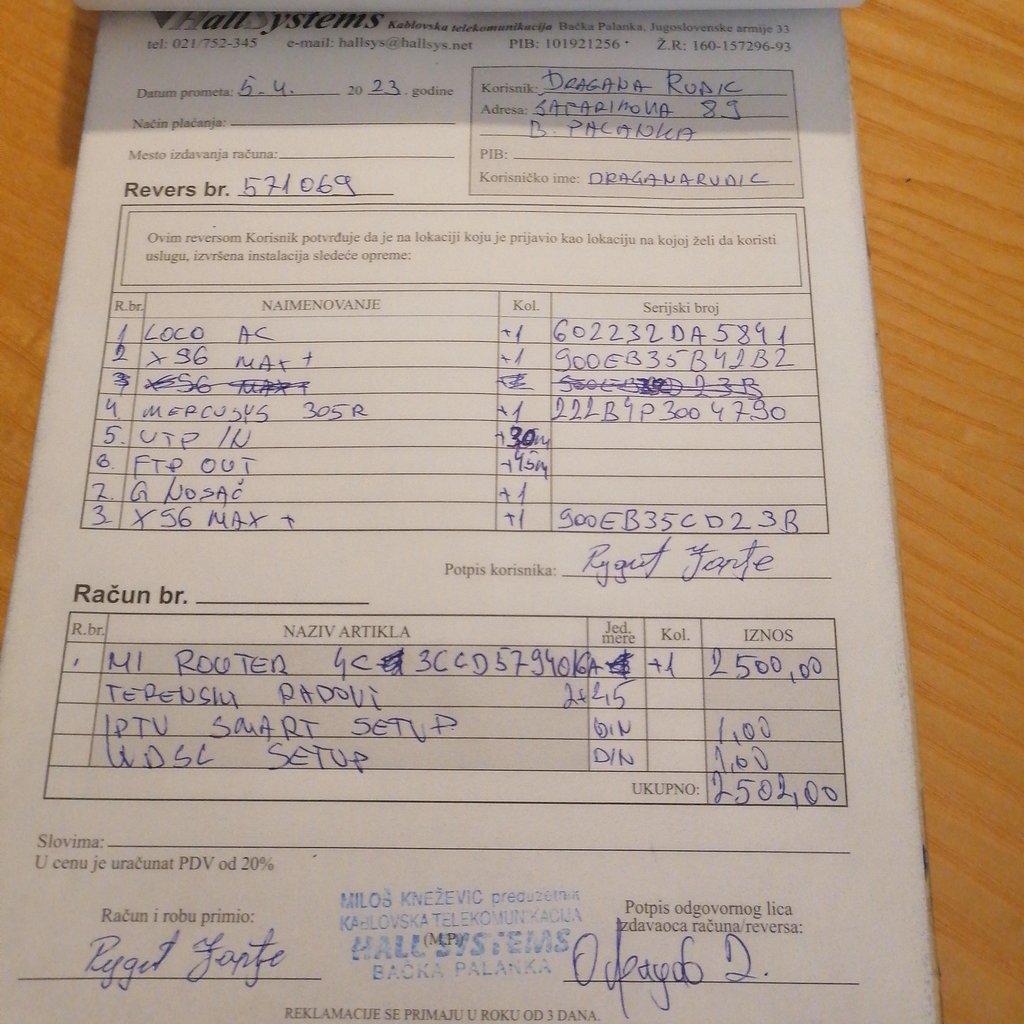 HallSystems Kablovska telekomunikacija Bačka Palanka, Jugoslovenske armije 33
tel: 021/752-345 e-mail: hallsys@hallsys.net PIB: 101921256 Ž.R: 160-157296-93
Datum prometa: 5.4. 2023. godine
Način plaćanja:
Mesto izdavanja računa:
Revers br. 571069
Korisnik: DRAGANA RUDIC
Adresa: ŠAFARIKOVA 89
B. PALANKA
PIB:
Korisničko ime: DRAGANARUDIC
Ovim reversom Korisnik potvrđuje da je na lokaciji koju je prijavio kao lokaciju na kojoj želi da koristi
uslugu, izvršena instalacija sledeće opreme:
R.br. NAIMENOVANJE Kol. Serijski broj
1 LOCO AC +1 602232DA5841
2 X96 MAX+ +1 900EB35B42B2
4 MERCUSYS 305R +1 222B4P3004790
5. UTP IN +30m
6. FTP OUT +45m
7. G NOSAČ +1
3. X96 MAX+ +1 900EB35CD23B
Potpis korisnika:
Račun br.
R.br. NAZIV ARTIKLA Jed. mere Kol. IZNOS
MI ROUTER 4C 3CCD57940 +1 2500,00
TERENSKI RADOVI
IPTV SMART SETUP DIN 1,00
WDSL SETUP DIN 1,00
UKUPNO: 2502,00
Slovima:
U cenu je uračunat PDV od 20%
Račun i robu primio:
MILOŠ KNEŽEVIĆ preduzetnik
KABLOVSKA TELEKOMUNIKACIJA
(M.P)
HALL SYSTEMS
BAČKA PALANKA
Potpis odgovornog lica
izdavaoca računa/reversa:
REKLAMACIJE SE PRIMAJU U ROKU OD 3 DANA.